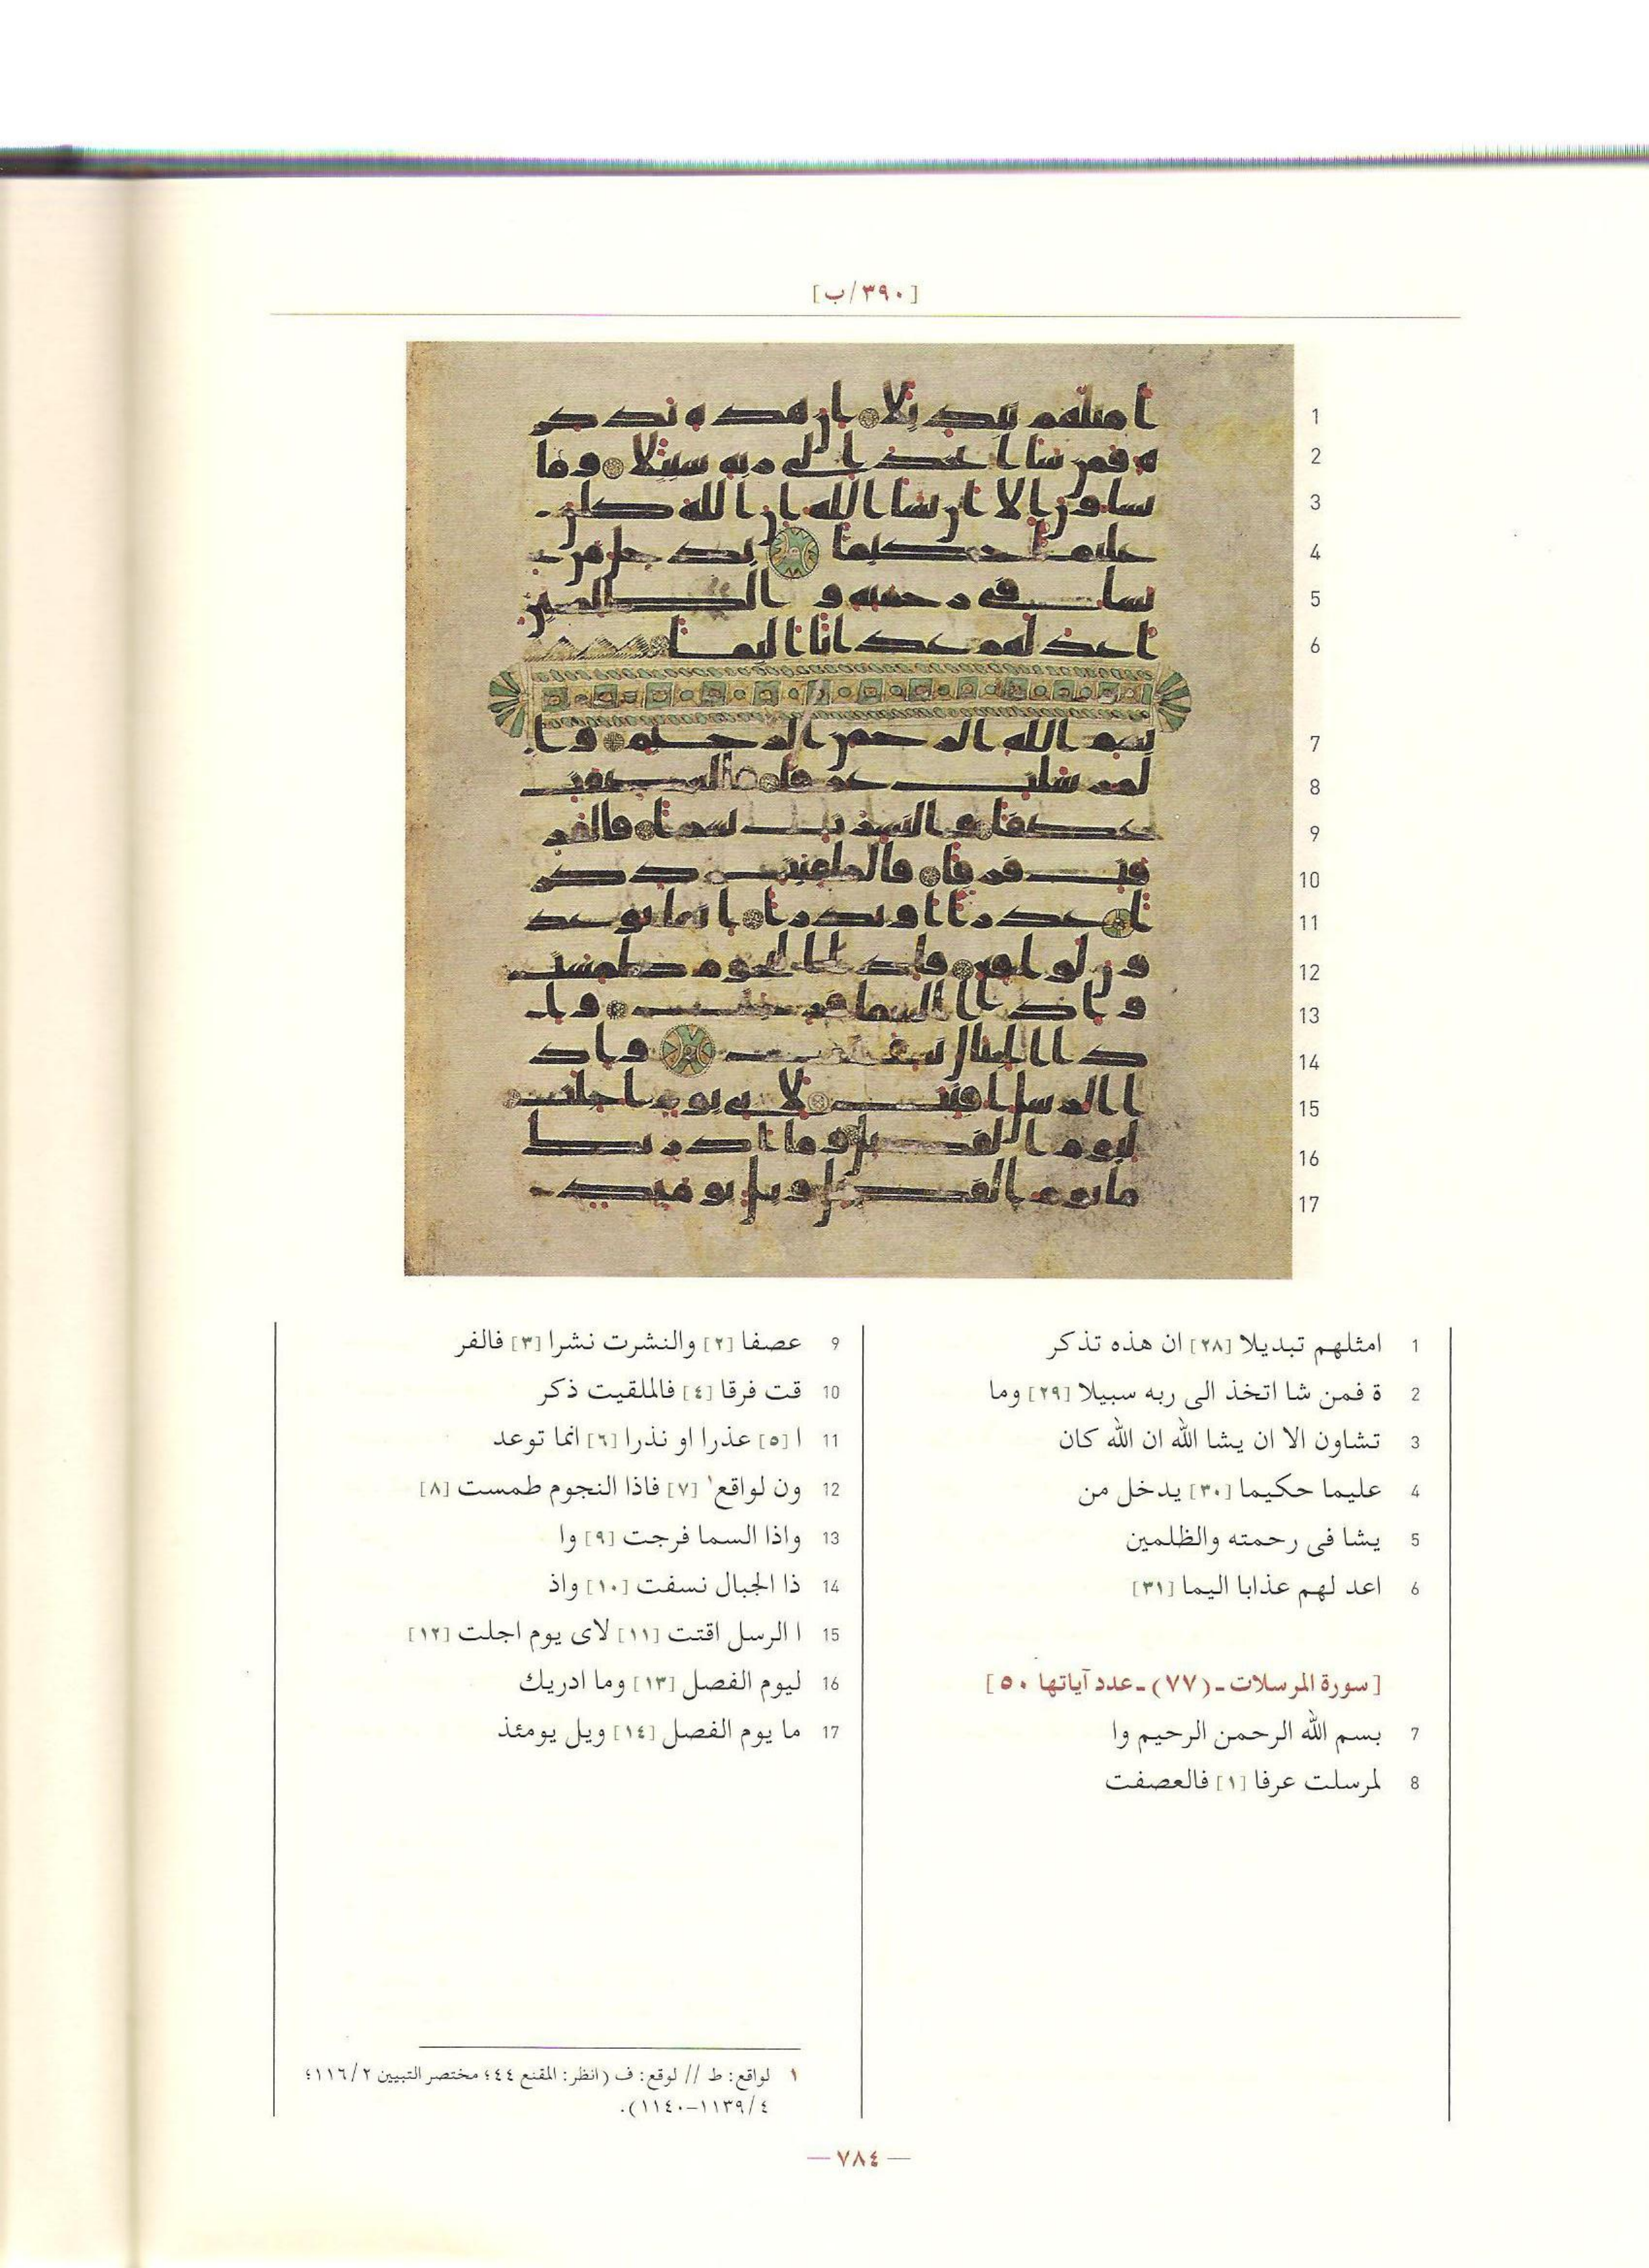 [٣٩٠/ب]
1
2
3
4
5
6
7
8
9
10
11
12
13
14
15
16
17
1 امثلهم تبديلا [٢٨] ان هذه تذكر
2 ة فمن شا اتخذ الى ربه سبيلا [٢٩] وما
3 تشاون الا ان يشا الله ان الله كان
4 عليما حكيما [٣٠] يدخل من
5 يشا فى رحمته والظلمين
6 اعد لهم عذابا اليما [٣١]
[سورة المرسلات ـ (٧٧) ـ عدد آياتها ٥٠]
7 بسم الله الرحمن الرحيم وا
8 لمرسلت عرفا [١] فالعصفت
9 عصفا [٢] والنشرت نشرا [٣] فالفر
10 قت فرقا [٤] فالملقيت ذكر
11 ا [٥] عذرا او نذرا [٦] انما توعد
12 ون لواقع١ [٧] فاذا النجوم طمست [٨]
13 واذا السما فرجت [٩] وا
14 ذا الجبال نسفت [١٠] واذ
15 ا الرسل اقتت [١١] لاى يوم اجلت [١٢]
16 ليوم الفصل [١٣] وما ادريك
17 ما يوم الفصل [١٤] ويل يومئذ
١ لواقع: ط // لوقع: ف (انظر: المقنع ٤٤؛ مختصر التبيين ١١٦/٢؛
٤/١١٣٩-١١٤٠).
— ٧٨٤ —